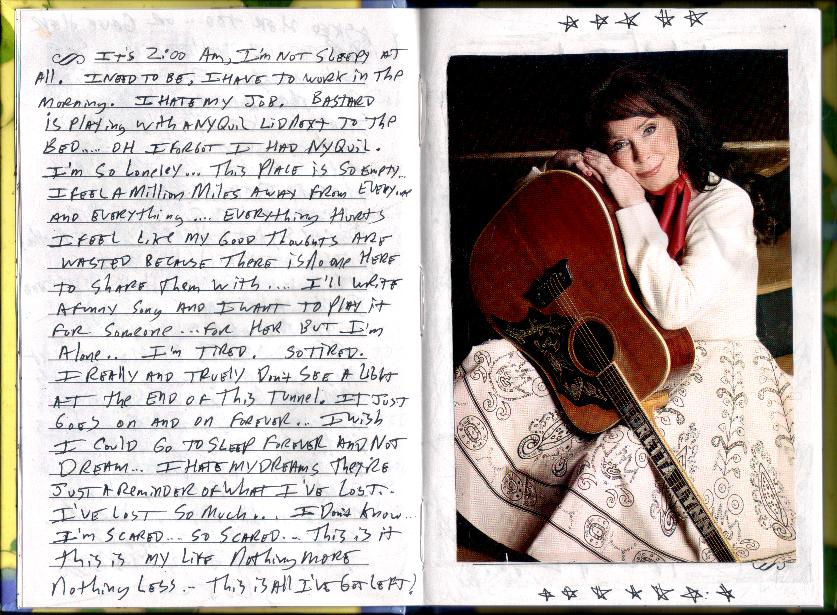 It's 2:00 Am, I'm NOT Sleepy AT
All. I NEED TO BE, I HAVE TO WORK in The
Morning. I HATE MY JOB. BASTARD
is Playing with A NYQuil Lid Next To The
BED.... OH I FORGOT I HAD NYQuil.
I'm So Loneley... This Place is So Empty..
I FEEL A Million Miles AWAY From
AND EVERYthing .... EVERYthing HURTS
I FEEL LIKE MY GOOD Thoughts ARE
WASTED BECAUSE THERE is No one HERE
TO SHARE Them With .... I'll WRITE
A Funny Song AND I WANT TO Play it
FOR Someone ... FOR HER BUT I'm
Alone.. I'm TIRED. SO TIRED.
I REAlly AND TRUELY Don't SEE A Light
AT the END OF This Tunnel. IT JUST
GOES ON AND ON FOREVER... I Wish
I Could Go TO SLEEP FOREVER AND NOT
DREAM... I HATE MY DREAMS They'RE
JUST A REMINDER OF WHAT I'VE LOST..
I'VE LOST So Much... I Don't Know...
I'm SCARED... SO SCARED... This is it
This is MY LIFE Nothing MORE
Nothing LESS .. This is All I'VE Got LEFT?
LORETTA LYNN